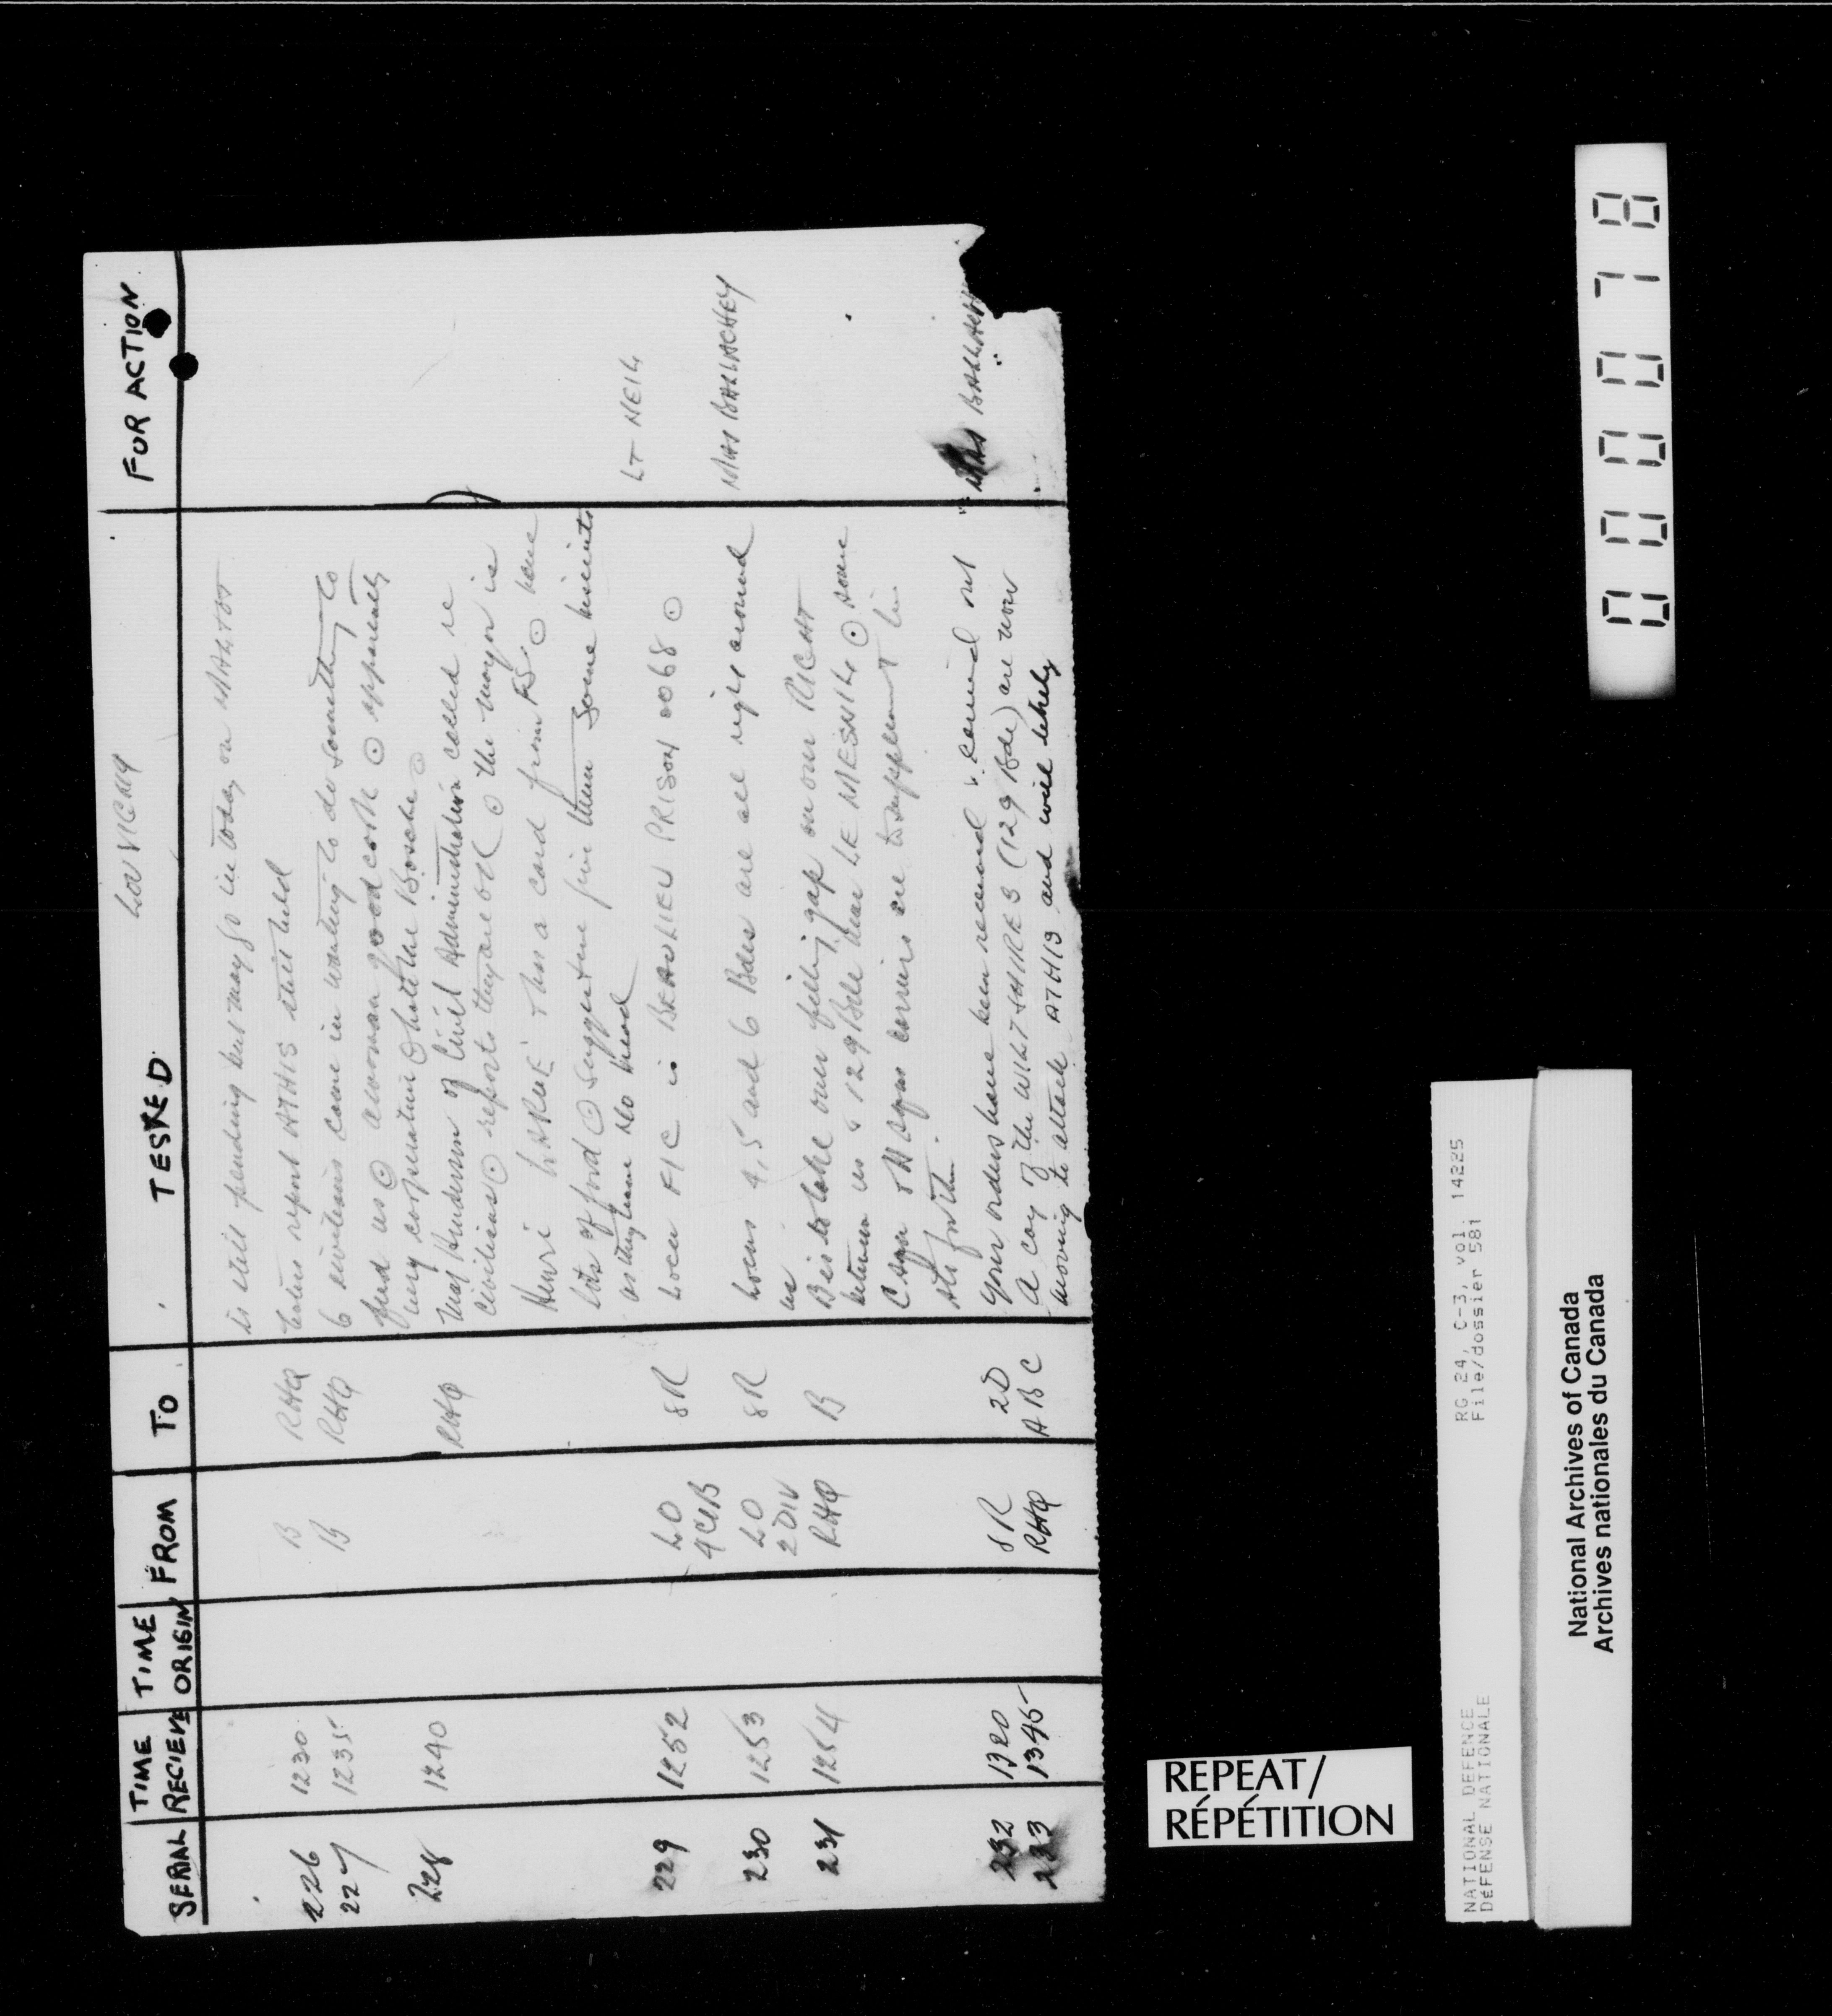 LOUVIGNY
SERIAL
TIME RECIEVE
TIME ORIGIN
FROM
TO
TESTED
FOR ACTION
is still pending but may go in today on MALTOT
226 1230 B RHQ report ATHIS still held
227 1235 B RHQ 6 civilians came in wanting to do something to
feed us ⊙ a woman good cook ⊙ apparently
very cooperative ⊙ hate the Bosche ⊙
228 1240 RHQ Maj Henderson of Civil Administration called re
civilians ⊙ reports they are OK ⊙ the mayor is
Henri LARUE has a card from FS ⊙ have
lots of food ⊙ suggest we give them some biscuits
as they have no bread
229 1252 LO 4CIB 8R Locn FIC is BEAULIEU PRISON 0068 ⊙ LT NEIL
230 1253 LO 2 DIV 8R Locns 4, 5 and 6 Bdes are all right around MAJ BALLACHEY
us
231 1254 RHQ B B is to take over filling gap on our RIGHT
between us & 129 Bde near LE MESNIL ⊙ some
C Sqn carriers are to supplement
for them.
232 1320 8R 2D your orders have been received & carried out MAJ
233 1345 RHQ A B C A coy of the WILTSHIRES (129 Bde) are now
moving to attack ATHIS and will likely
REPEAT/
RÉPÉTITION
NATIONAL DEFENCE
DÉFENSE NATIONALE
RG 24, C-3, vol. 14225
File/dossier 581
National Archives of Canada
Archives nationales du Canada
0000078